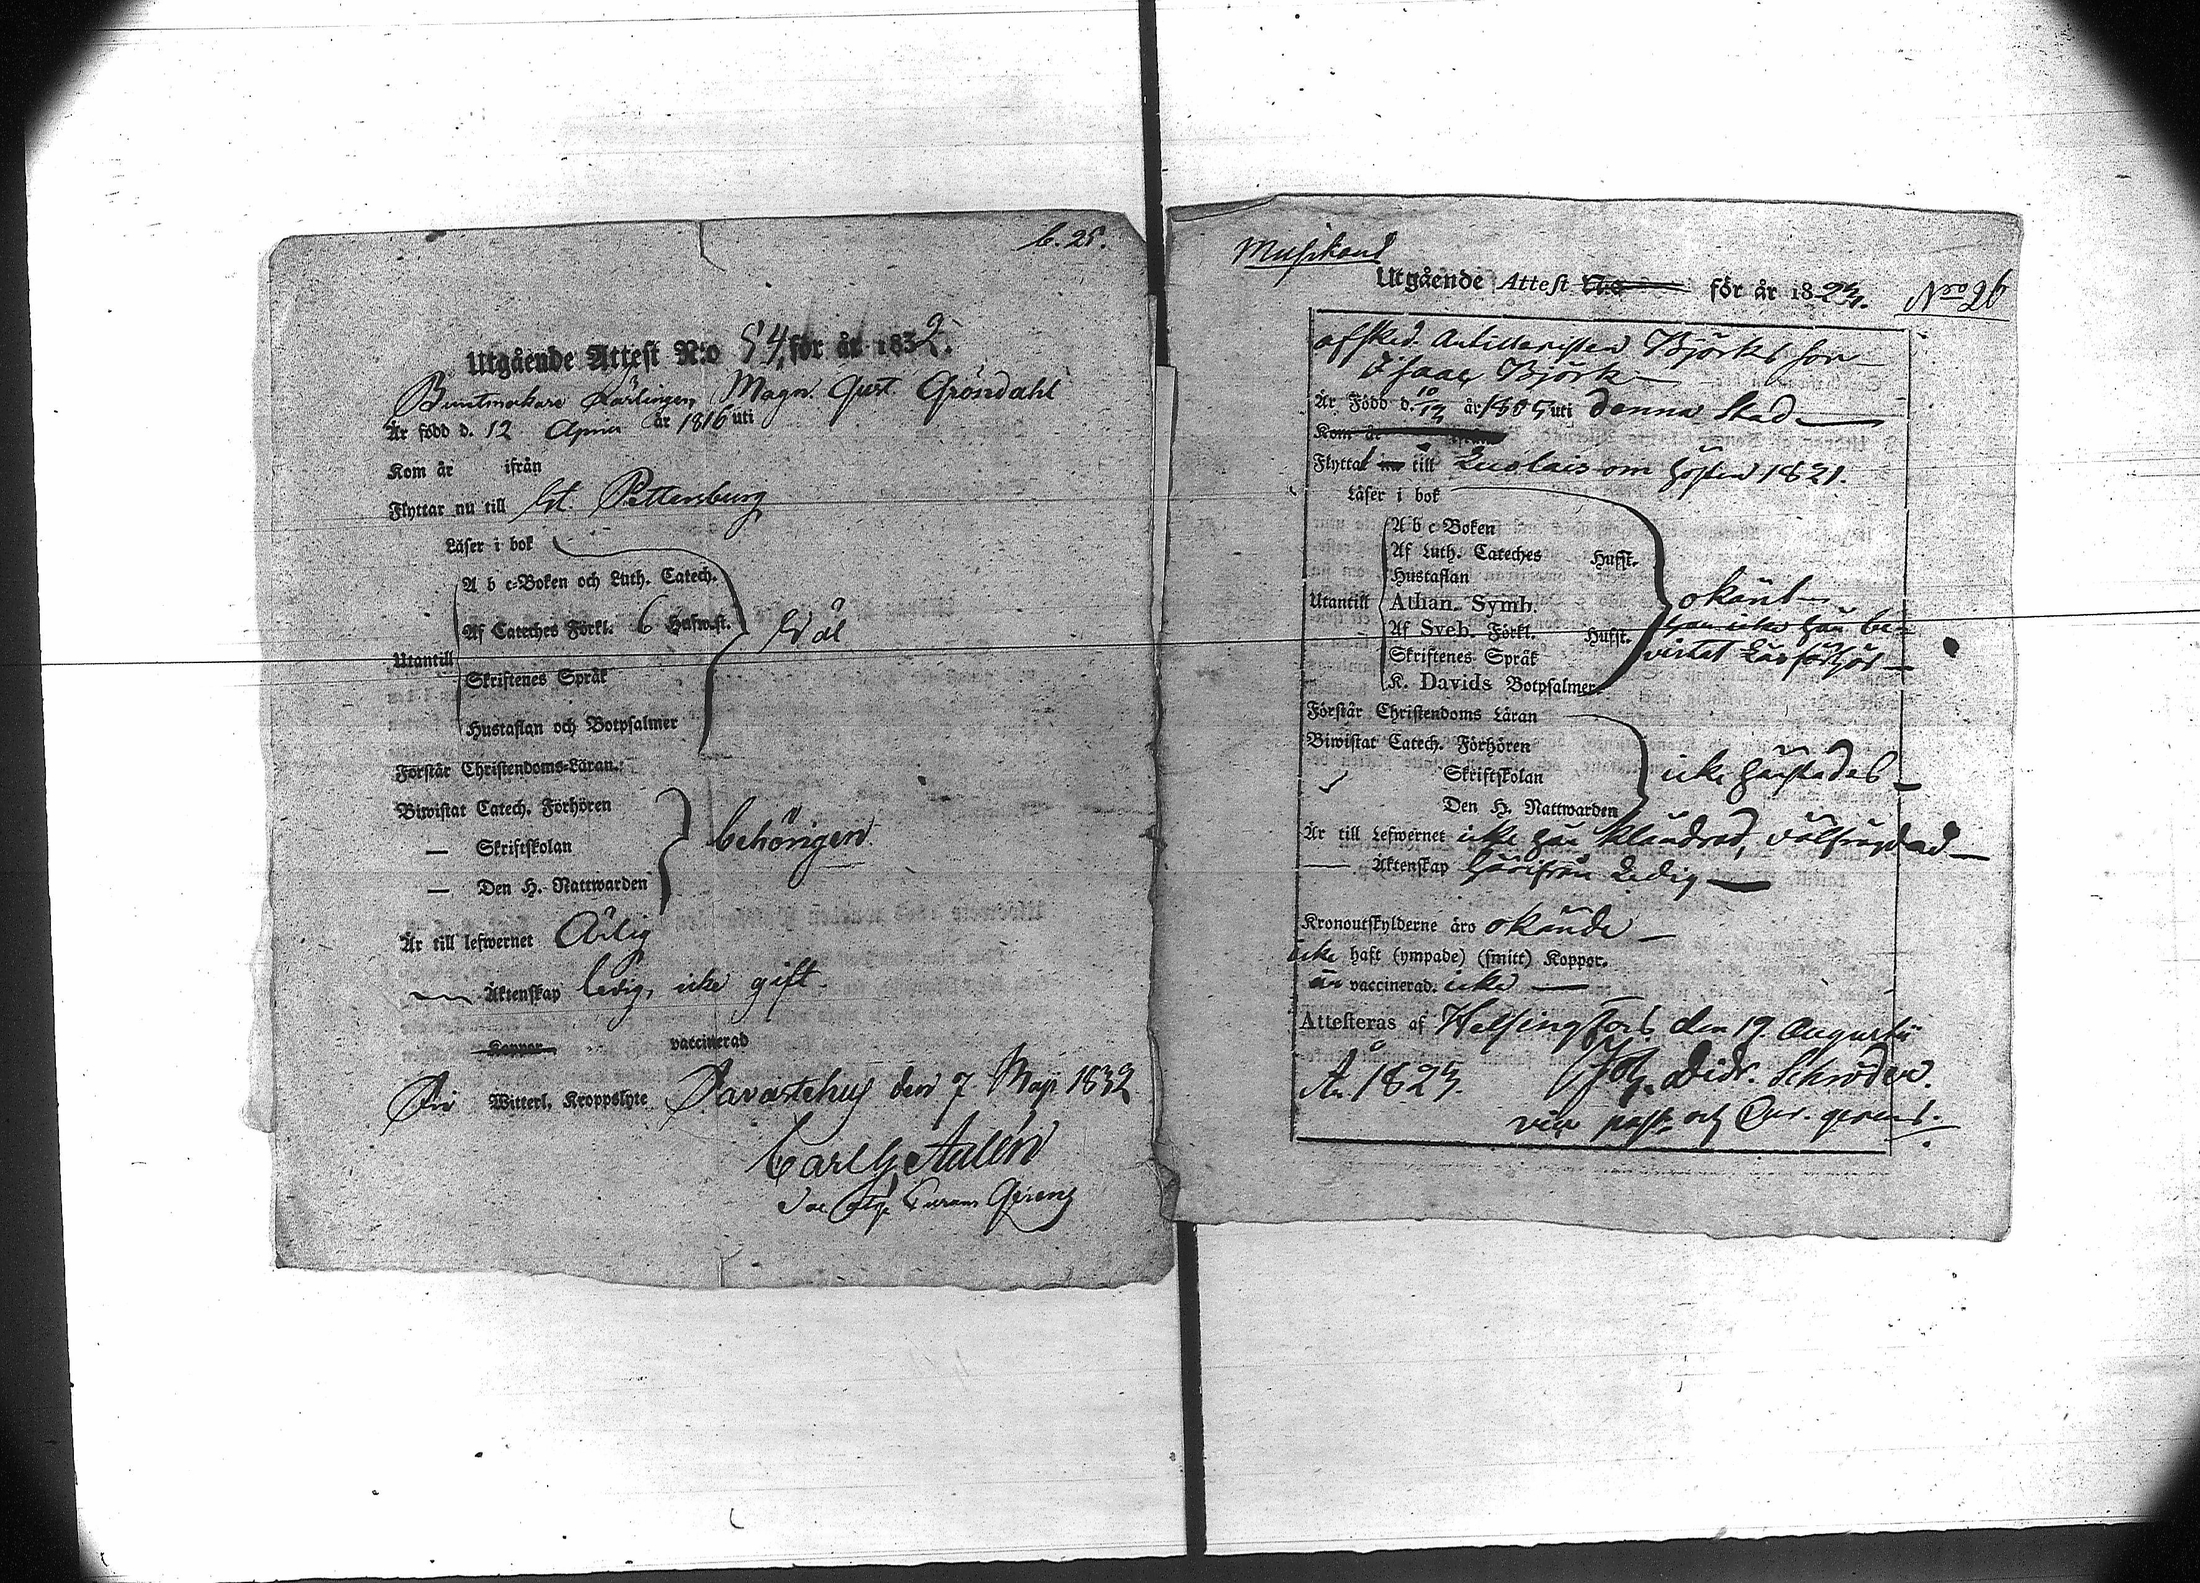 b. 25.
Utgående Attest N:o 54, för år 1832.
Buntmakare Lärlingen Magn. Gust. Gröndahl
Är född d. 12 April år 1816 uti
Kom år ifrån
Flyttar nu till St. Pettersburg
Läser i bok
A b c-Boken och Luth. Catech.
Utantill Af Cateches Förkl. 6 Hufwst. Wäl
Skriftenes Språk
Hustaflan och Botpsalmer
Förstår Christendoms-Läran.
Biwistat Catech. Förhören
— Skriftskolan behörigen
— Den H. Nattwarden
Är till lefwernet Ärlig
Äktenskap ledig, icke gift.
Koppor vaccinerad
Witterl. Kroppslyte Tavastehus den 7 Maji 1832
Carl G Aulén
Musikant
Utgående Attest N:o för år 1823. Nro 26
afsked. Artilleristen Björks son
Isaac Björk
Är Född d. 10/12 år 1805 uti denna Stad
Kom år ifrån
Flyttat till om hösten 1821.
Läser i bok
A b c-Boken
Af Luth. Cateches Hufst.
Hustaflan
Utantill Athan. Symb. okänt
Af Sveb. Förkl. Hufst. har icke här be-
Skriftenes Språk vistat Läsförhör
K. Davids Botpsalmer
Förstår Christendoms Läran
Biwistat Catech. Förhören
Skriftskolan icke härstädes
Den H. Nattwarden
Är till Lefwernet icke här klandrad, välfrägdad
— Äktenskap härifrån Ledig
Kronoutskylderne äro okände
icke haft (ympade) (smitt) Koppor.
är vaccinerad. icke
Attesteras af Helsingfors den 19 Augusti
År 1823. Joh. Didr. Schröder.
vic. past. och Cur. gerens.